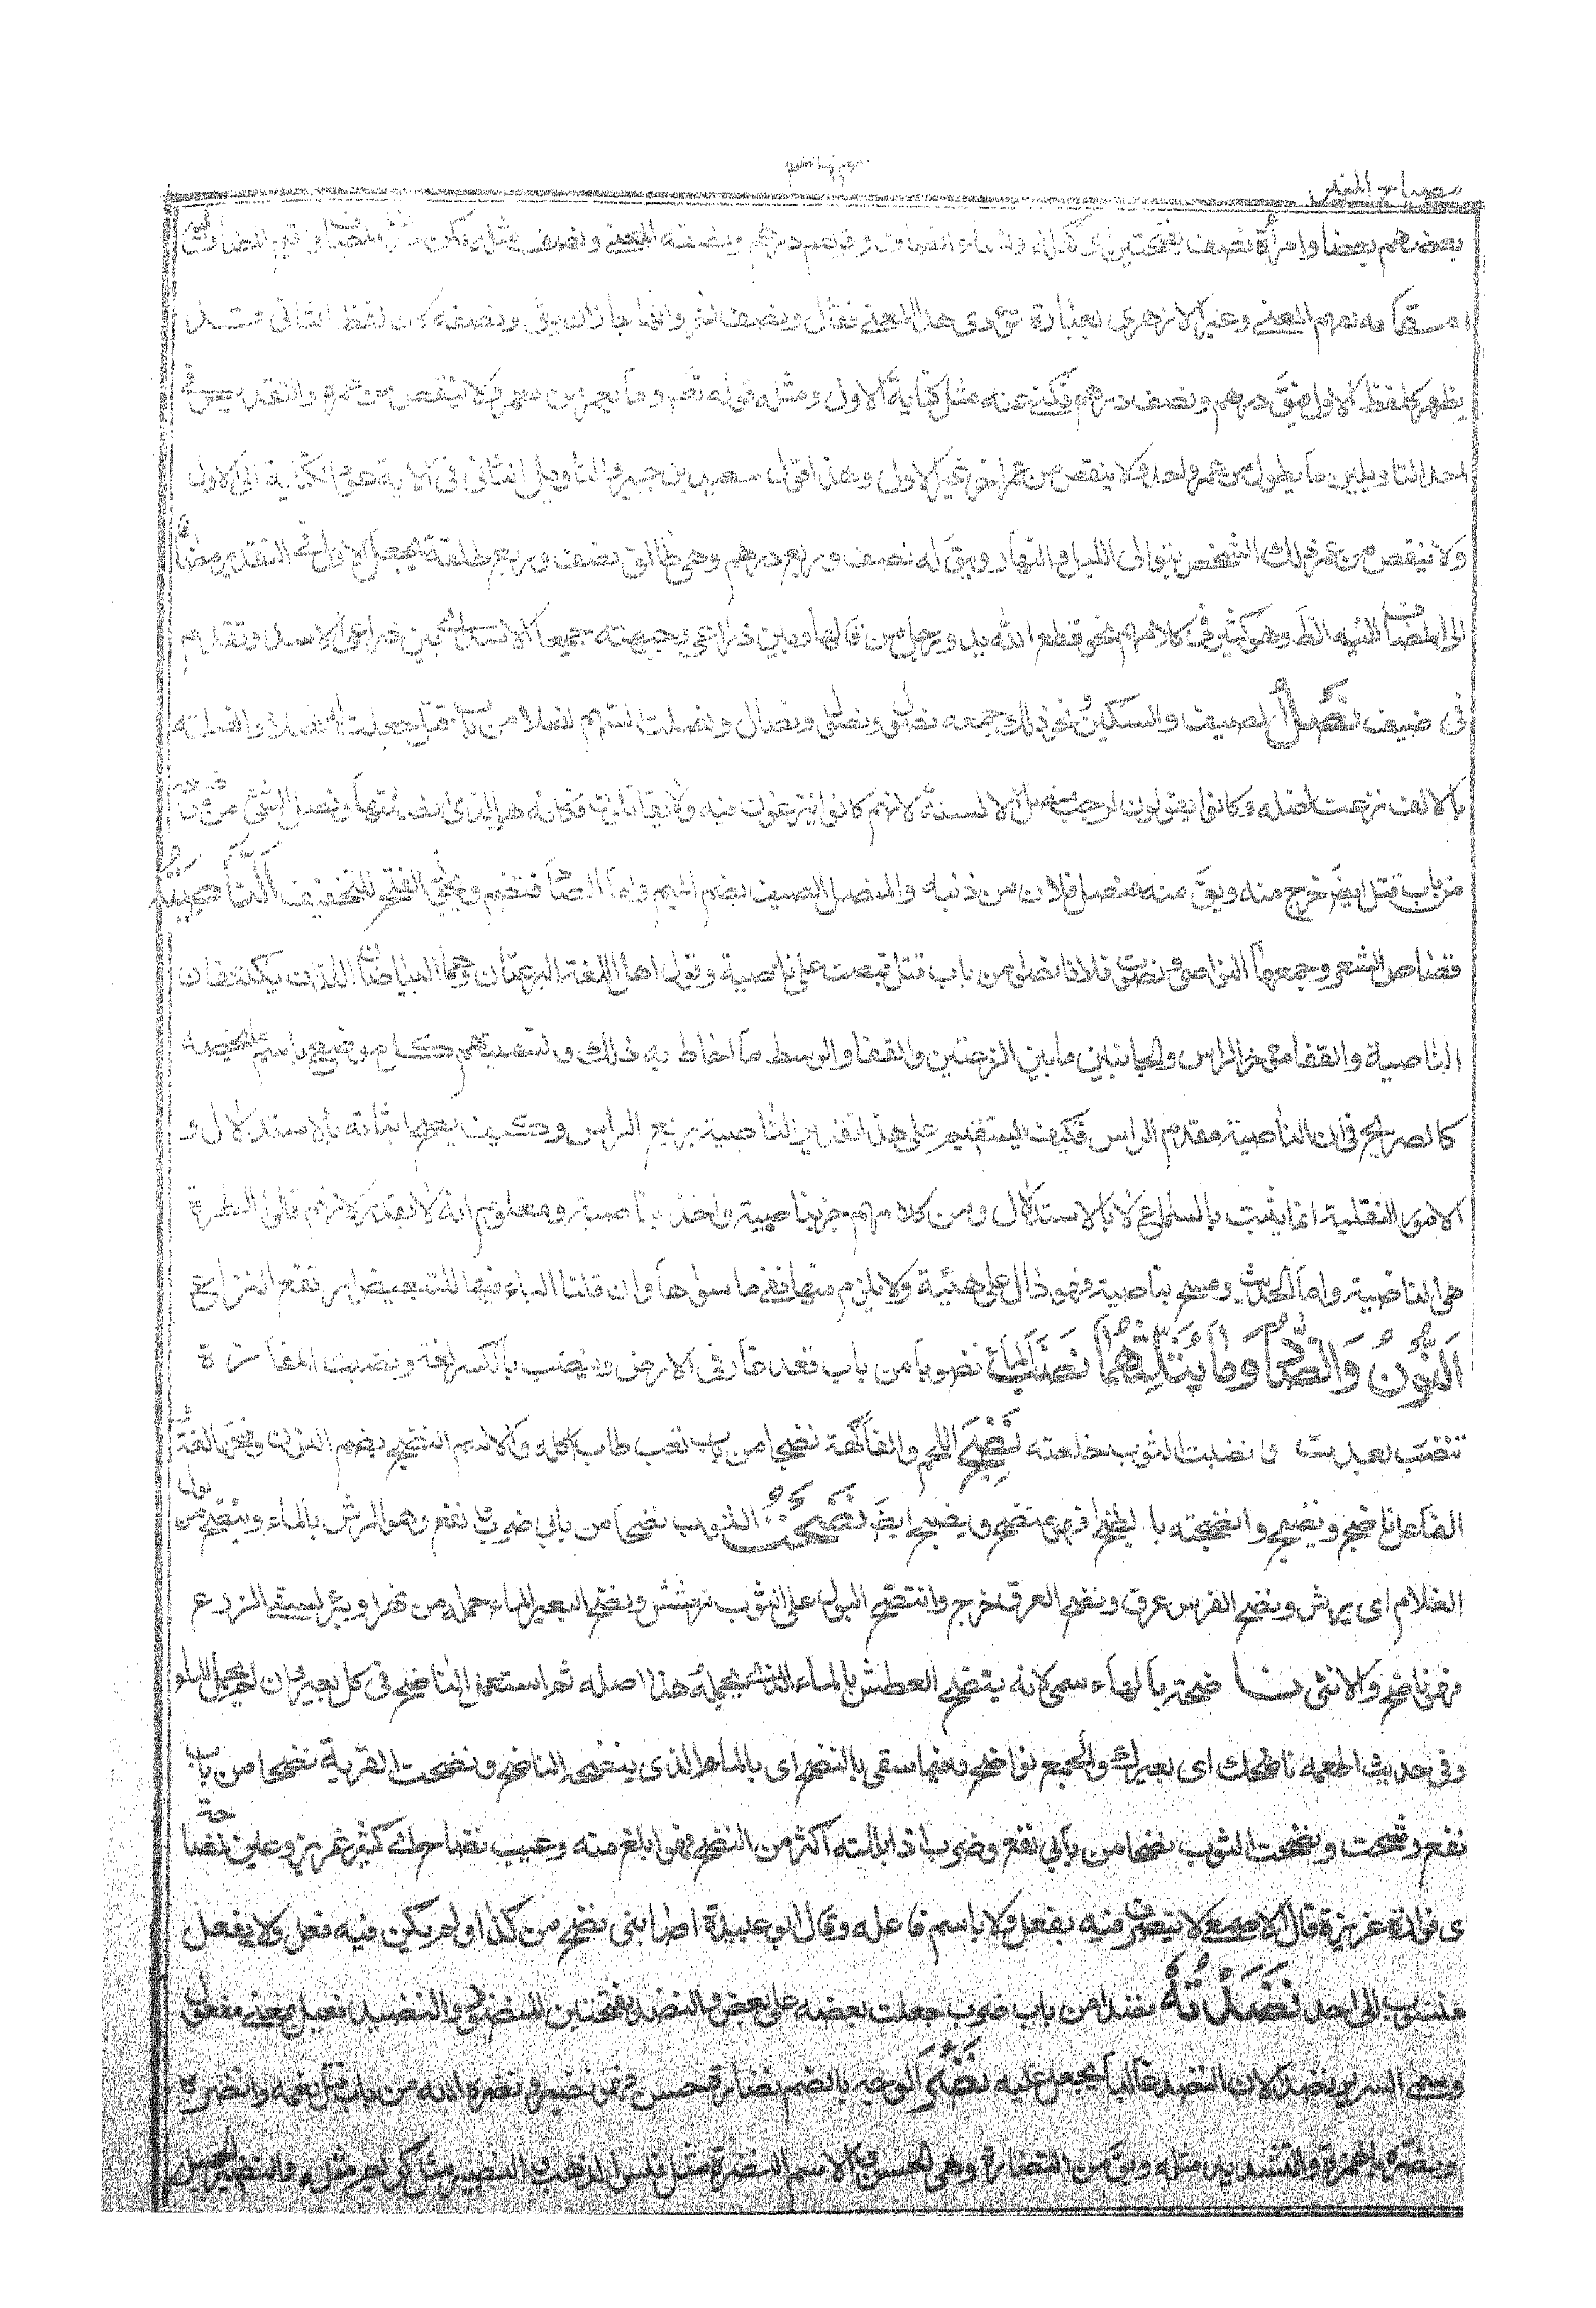 مصباح المنير
بعضهم بعضا وامرأة نصف بفتحتين اى كهلة ونساء انصاف و نصف درهم ونصفه المعنى ونصف مثله لكن حذف المضاف واقيم المضاف اليه
مقامه لفهم المعنى وعبر الازهرى بعبارة تؤدى هذا المعنى فقال ونصف اخر وانما جاز ان يق ونصفه لان لفظ الثانى قد
يظهر كلفظ الاول فيق درهم ونصف درهم فكنى عنه مثل كناية الاول ومثله قوله تعم وما يعمر من معمر ولا ينقص من عمره والتقدير فى
احد التاويلين ما يطول من عمر واحد ولا ينقص من عمر اخر غير الاول وهذا قول سعيد بن جبير والتاويل الثانى فى الاية عود الكناية الى الاول
ولا ينقص من عمر ذلك الشخص بتوالى الليل والنهار ويق له نصف وربع درهم وهى طالق نصف وربع طلقة يجعل الاول فى التقدير مضافا
الى المضاف اليه الظ وهو كثير فى كلامهم نحو قطع الله يد ورجل من قالها وبين ذراعى وجبهة الاسد اى بين ذراعى الاسد وتقدم
فى ضيف نَصْلُ السيف والسكين ونحو ذلك جمعه نصول ونصال ونصلت السهم نصلا من باب قتل جعلت له نصلا وانصلته
بالالف نزعت نصله وكانوا يقولون لرجب منصل الالسنة لانهم كانوا ينزعون فيه ولا يقاتلون فكانه هو الذى انصلها ونصل الشئ من موضعه
من باب قتل ايضَ خرج منه ويق منه تنصل فلان من ذنبه والمنصل السيف بضم الميم واما الصاد فتضم ويجوز الفتح للتخفيف النَّاصِيَةُ
قصاص الشعر وجمعها النواصى ونصوت فلانا نصوا من باب قتل قبضت على ناصية وقول اهل اللغة النزعتان وهما البياضان اللذان يكتنفان
الناصية والقفا مؤخر الراس والجانبين مابين النزعتين والقفا والوسط ما احاط به ذلك وتسميتهم كل موضع باسم يخصه
كالصريح فى ان الناصية مقدم الراس فكيف يستقيم على هذا تقدير الناصية بربع الراس وكيف يصح اثباته بالاستدلال و
الامور النقلية انما يثبت بالسماع لا بالاستدلال ومن كلامهم جز ناصيته واخذ بناصيته ومعلوم انه لا يتقدر لانهم قالوا الطرة
هى الناصية واما الحديث ومسح بناصيته فهو دال على هيئة ولا يلزم منها نفى ما سواها وان قلنا الباء فيها للتبعيض ارتفع النزاع
النُّونُ وَالضَّادُ وَمَا يَثْلُثُهُمَا نَضَبَ الماء نضوبا من باب قعد غار فى الارض وينضب بالكسر لغة ونضبت المفازة
تنضب بعدت و نضبت الثوب خلعته نَضِجَ اللحم والفاكهة نضجا من باب تعب طاب اكله والاسم النضج بضم النون وفتحها لغة
الفاعل ناضج ونضيج وانضجته با لطبخ فهو منضج ونضيج ايضَ نَضَحْتُ الثوب نضحا من بابى ضرب و نفع وهو الرش بالماء وينضح من بول
الغلام اى يرش ونضح الفرس عرق ونضح العرق خرج وانتضح البول على الثوب ترشش ونضح البعير الماء حمله من نهر او بئر لسقى الزرع
فهو ناضح والانثى نا ضحة بالهاء سمى لانه ينضح العطش بالماء الذى يحمله هذا اصله ثم استعمل الناضح فى كل بعير وان لم يحمل الماء
وفى حديث اطعمه ناضحك اى بعيرك والجمع نواضح وفيما سقى بالنضح اى بالماء الذى ينضحه الناضح ونضحت القربة نضحا من باب
نفع رشحت ونضخت الثوب نضخا من بابى نفع وضرب اذا بللته اكثر من النضح فهو ابلغ منه وغيث نضاخ اى كثير غزير وعين نضاخة
اى فوارة غزيرة قال الاصمعى لا يتصرف فيه بفعل ولا باسم فاعله وقال ابو عبيدة اصابنى نضخ من كذا ولم يكن فيه فعل ولا يفعل
منسوب الى احد نَضَدْتُهُ نضدا من باب ضرب جعلت بعضه على بعض والنضد بفتحتين المنضود والنضيد فعيل بمعنى مفعول
وسمى السرير نضدا لان النضد غالبا يجعل عليه نَضُرَ الوجه بالضم نضارة حسن فهو نضير ونضره الله من باب قتل نعمه وانضره
ونضره بالهمزة والتشديد مثله ويق من النضارة وهى الحسن والاسم النضرة مثل فلس الذهب والنضير مثل كريم مثله والنضير الجميل